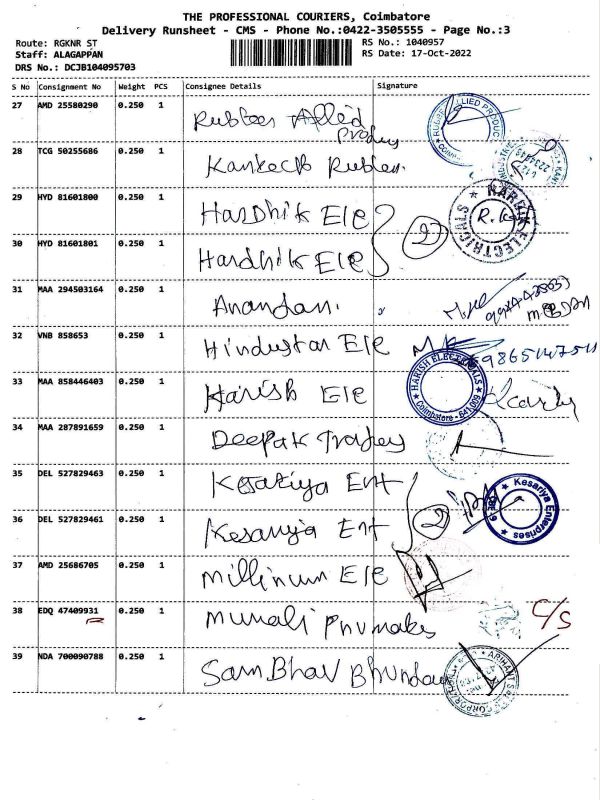 THE PROFESSIONAL COURIERS, Coimbatore
Delivery Runsheet - CMS - Phone No.:0422-3505555 - Page No.:3
Route: RGKNR ST
Staff: ALAGAPPAN
DRS No.: DCJB104095703
RS No.: 1040957
RS Date: 17-Oct-2022
S No Consignment No Weight PCS Consignee Details Signature
27 AMD 25580290 0.250 1 Rubber Allied
28 TCG 50255686 0.250 1 Rubber
29 HYD 81601800 0.250 1 Hardhik Ele
30 HYD 81601801 0.250 1 Hardhik Ele
2
31 MAA 294503164 0.250 1 Anandan.
32 VNB 858653 0.250 1 Hindustan Ele
33 MAA 858446403 0.250 1 Harish Ele
HARISH ELECTRICALS
Coimbatore - 641 009
34 MAA 287891659 0.250 1 Deepak
35 DEL 527829463 0.250 1 Kesariya Ent
36 DEL 527829461 0.250 1 Kesariya Ent
2
Kesariya Enterprises
CBE-9
37 AMD 25686705 0.250 1 Millinum Ele
38 EDQ 47409931 0.250 1 Murali
C/S
39 NDA 700090788 0.250 1 Sambhav
ARIHANT